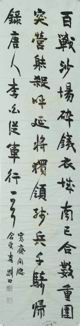 百戰沙場碎鐵衣城南已合數重圍
突營射殺呼延將獨領殘兵千騎歸
錄唐人李白從軍行